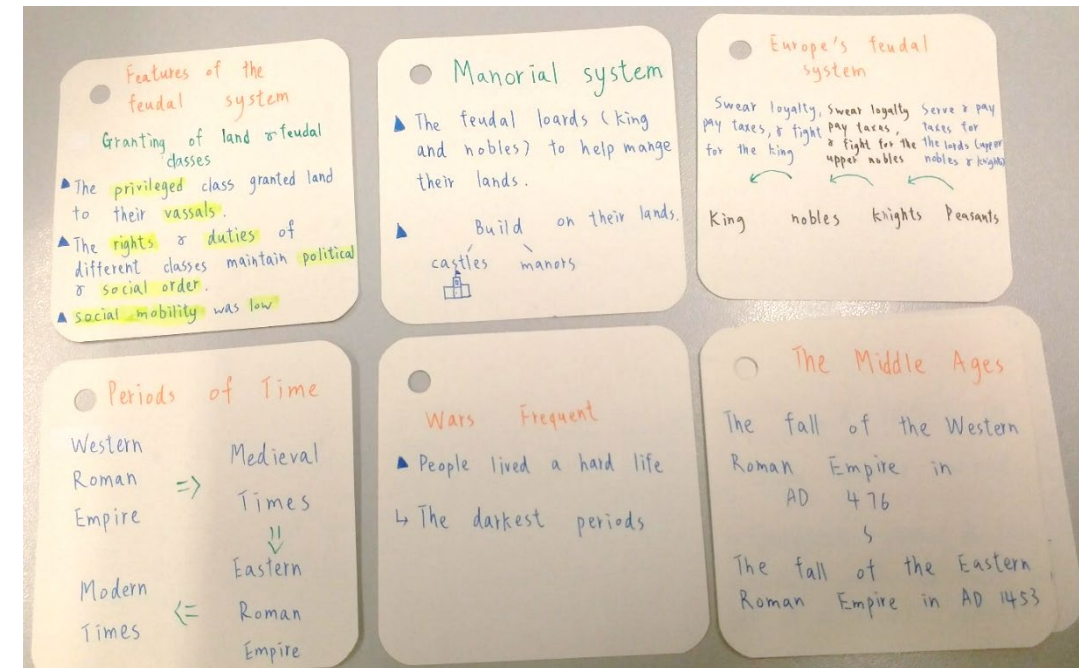 Features of the
feudal system
Granting of land & feudal
classes
▲ The privileged class granted land
to their vassals.
▲ The rights & duties of
different classes maintain political
& social order.
▲ social mobility was low
Manorial system
▲ The feudal loards (king
and nobles) to help mange
their lands.
▲ Build on their lands.
castles manors
Europe's feudal
system
Swear loyalty,
pay taxes, & fight
for the king
Swear loyalty
pay taxes,
& fight for the
upper nobles
Serve & pay
taxes for
the lords (upper
nobles & knights)
King nobles knights Peasants
Periods of Time
Western
Roman
Empire
=>
Medieval
Times
=>
Eastern
Roman
Empire
<=
Modern
Times
Wars Frequent
▲ People lived a hard life
↳ The darkest periods
The Middle Ages
The fall of the Western
Roman Empire in
AD 476
~
The fall of the Eastern
Roman Empire in AD 1453